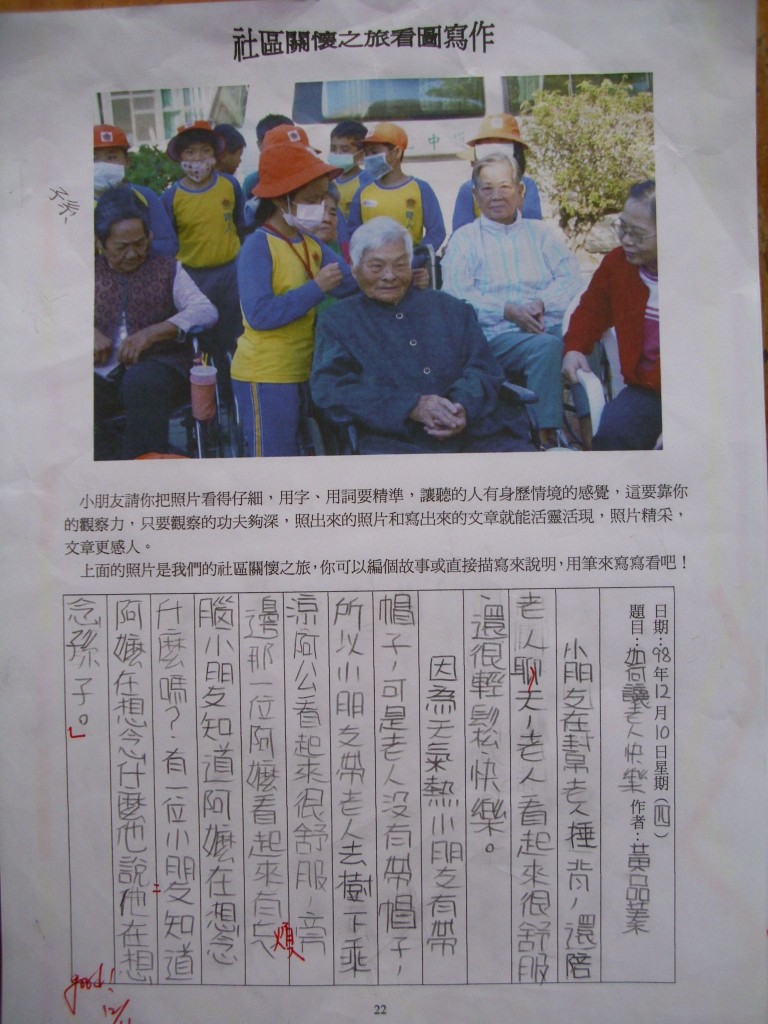 社區關懷之旅看圖寫作
中
小朋友請你把照片看得仔細，用字、用詞要精準，讓聽的人有身歷情境的感覺，這要靠你
的觀察力，只要觀察的功夫夠深，照出來的照片和寫出來的文章就能活靈活現，照片精采，
文章更感人。
上面的照片是我們的社區關懷之旅，你可以編個故事或直接描寫來說明，用筆來寫寫看吧！
日期：98年12月10日星期（四）
題目：如何讓老人快樂 作者：黃品蓁
小朋友在幫老人捶背，還陪
老人聊天，老人看起來很舒服
還很輕鬆快樂。
因為天氣熱小朋友有帶
帽子，可是老人沒有帶帽子，
所以小朋友帶老人去樹下乘
涼阿公看起來很舒服，旁
邊那一位阿嬤看起來有煩
腦小朋友知道阿嬤在想念
什麼嗎？有一位小朋友知道
阿嬤在想念什麼他說他在想
念孫子。」
good!
12/11
22